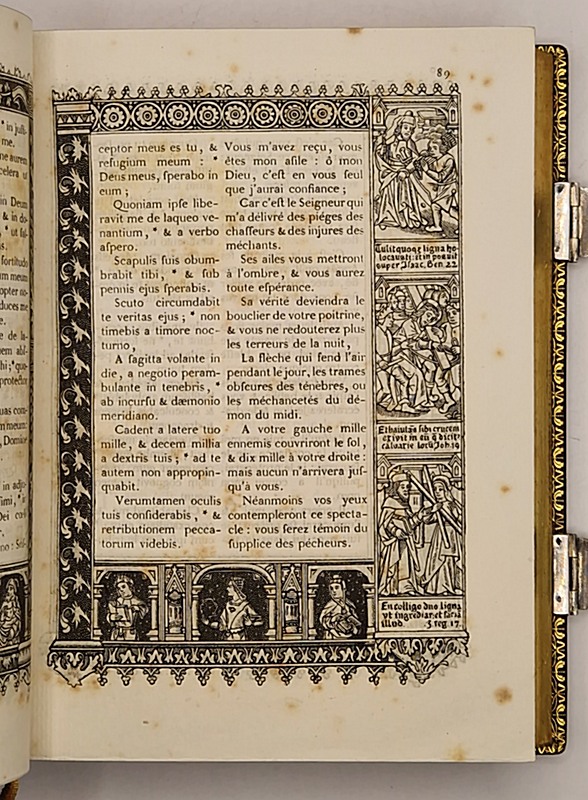 89
ceptor meus es tu, &
refugium meum : *
Deus meus, ſperabo in
eum ;
Quoniam ipſe libe-
ravit me de laqueo ve-
nantium, * & a verbo
aſpero.
Scapulis ſuis obum-
brabit tibi, * & ſub
pennis ejus ſperabis.
Scuto circumdabit
te veritas ejus ; * non
timebis a timore noc-
turno,
A ſagitta volante in
die, a negotio peram-
bulante in tenebris, *
ab incurſu & dæmonio
meridiano.
Cadent a latere tuo
mille, & decem millia
a dextris tuis ; * ad te
autem non appropin-
quabit.
Verumtamen oculis
tuis conſiderabis, * &
retributionem pecca-
torum videbis.
Vous m'avez reçu, vous
êtes mon aſile : ô mon
Dieu, c'eſt en vous ſeul
que j'aurai confiance ;
Car c'eſt le Seigneur qui
m'a délivré des piéges des
chaſſeurs & des injures des
méchants.
Ses ailes vous mettront
à l'ombre, & vous aurez
toute eſpérance.
Sa vérité deviendra le
bouclier de votre poitrine,
& vous ne redouterez plus
les terreurs de la nuit,
La flèche qui fend l'air
pendant le jour, les trames
obſcures des ténèbres, ou
les méchancetés du dé-
mon du midi.
A votre gauche mille
ennemis couvriront le ſol,
& dix mille à votre droite :
mais aucun n'arrivera juſ-
qu'à vous.
Néanmoins vos yeux
contempleront ce specta-
cle : vous ſerez témoin du
ſupplice des pécheurs.
Tulitquoqz ligna ho-
locausti: et inposuit
super Isaac. Gen 22
Et baiulãs sibi crucem
exivit in eũ q̃ dicit
calvarie locũ Joh. 19
En colligo duo ligna
ut ingrediar et faciã
illud. 3 reg 17.
* in juſti-
me.
in Deum
& in do-
* ut ſal-
fortitudo
um meum